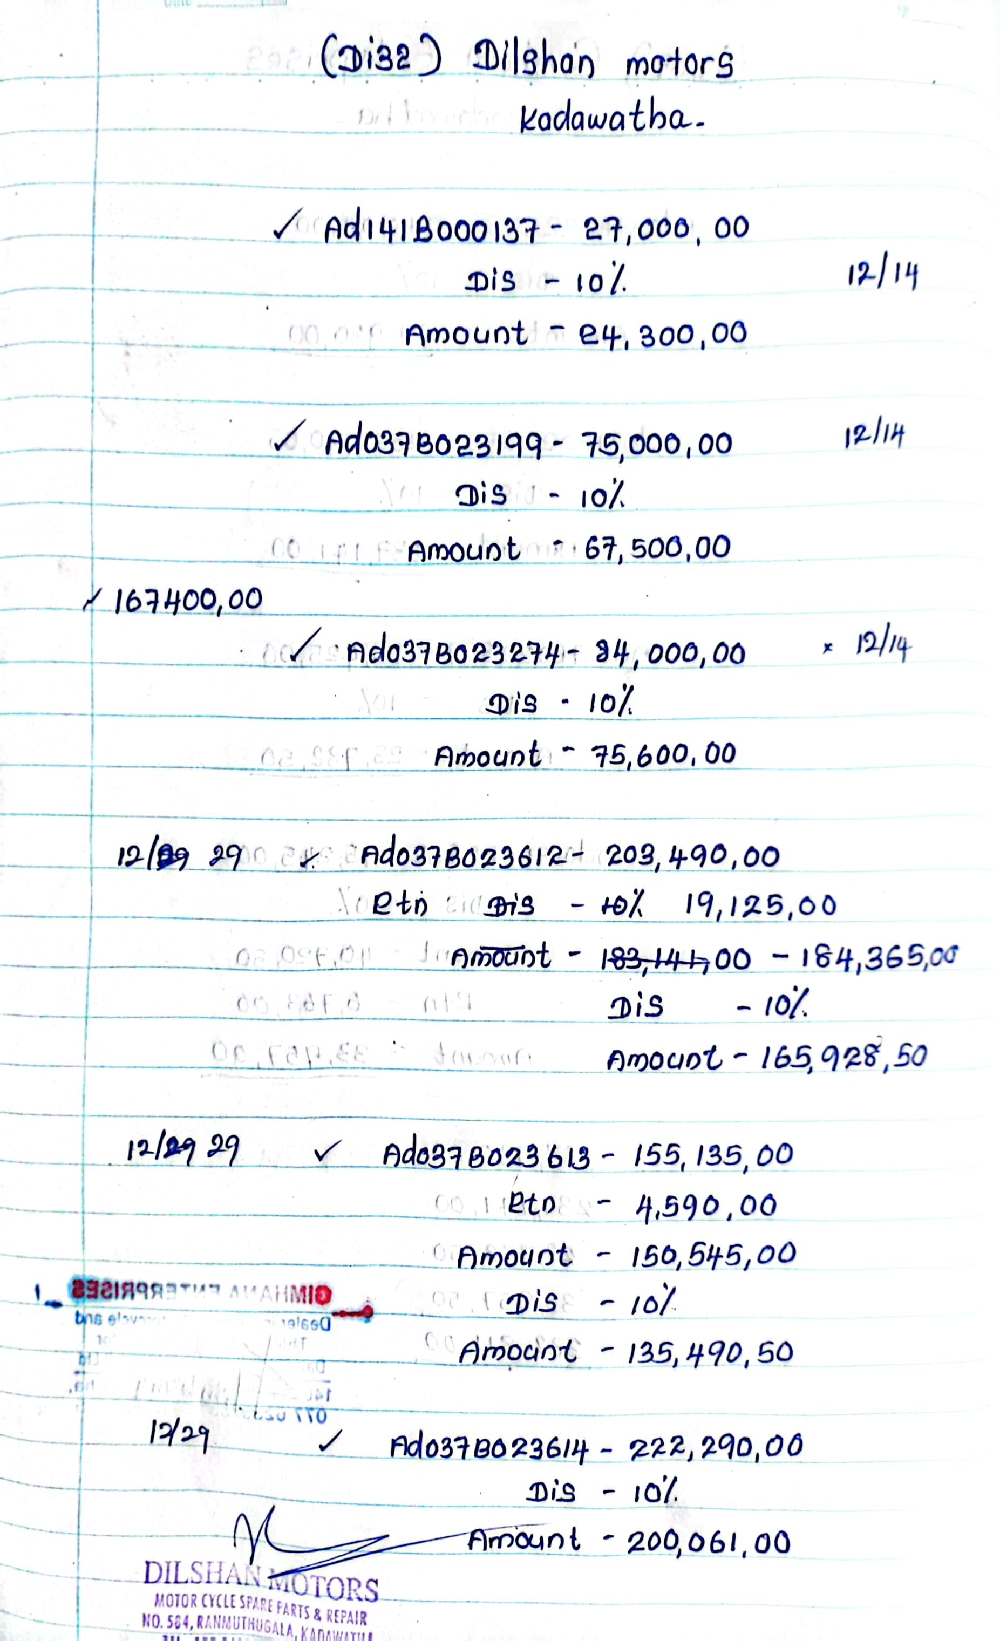 (Di32) Dilshan motors
Kadawatha.
✓ Ad141B000137 - 27,000,00
Dis - 10%
12/14
Amount - 24,300,00
✓ Ad037B023199 - 75,000,00 12/14
Dis - 10%
Amount - 67,500,00
✓ 167400,00
✓ Ad037B023274 - 84,000,00 × 12/14
Dis - 10%
Amount - 75,600,00
12/29 29 ✓ Ad037B023612 - 203,490,00
Rtn Dis - 10% 19,125,00
Amount - 183,141,00 - 184,365,00
Dis - 10%
Amount - 165,928,50
12/29 29 ✓ Ad037B023613 - 155,135,00
Rtn - 4,590,00
Amount - 150,545,00
GIMHANA ENTERPRISES
Dis - 10%
Amount - 135,490,50
12/29 ✓ Ad037B023614 - 222,290,00
Dis - 10%
Amount - 200,061,00
DILSHAN MOTORS
MOTOR CYCLE SPARE PARTS & REPAIR
NO. 584, RANMUTHUGALA, KADAWATHA